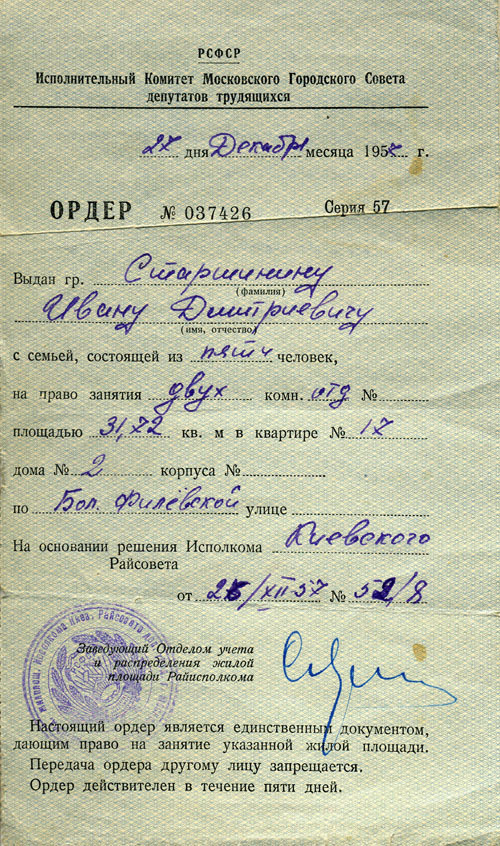 РСФСР
Исполнительный Комитет Московского Городского Совета
депутатов трудящихся
27 дня Декабря месяца 1957 г.
ОРДЕР № 037426 Серия 57
Выдан гр. Старшинину
(фамилия)
Ивану Дмитриевичу
(имя, отчество)
с семьей, состоящей из пяти человек,
на право занятия двух комн. отд №
площадью 31,72 кв. м в квартире № 17
дома № 2 корпуса №
по Бол. Филёвской улице
На основании решения Исполкома Киевского
Райсовета
от /XII 57 № 52/8
Заведующий Отделом учета
и распределения жилой
площади Райисполкома
Настоящий ордер является единственным документом,
дающим право на занятие указанной жилой площади.
Передача ордера другому лицу запрещается.
Ордер действителен в течение пяти дней.